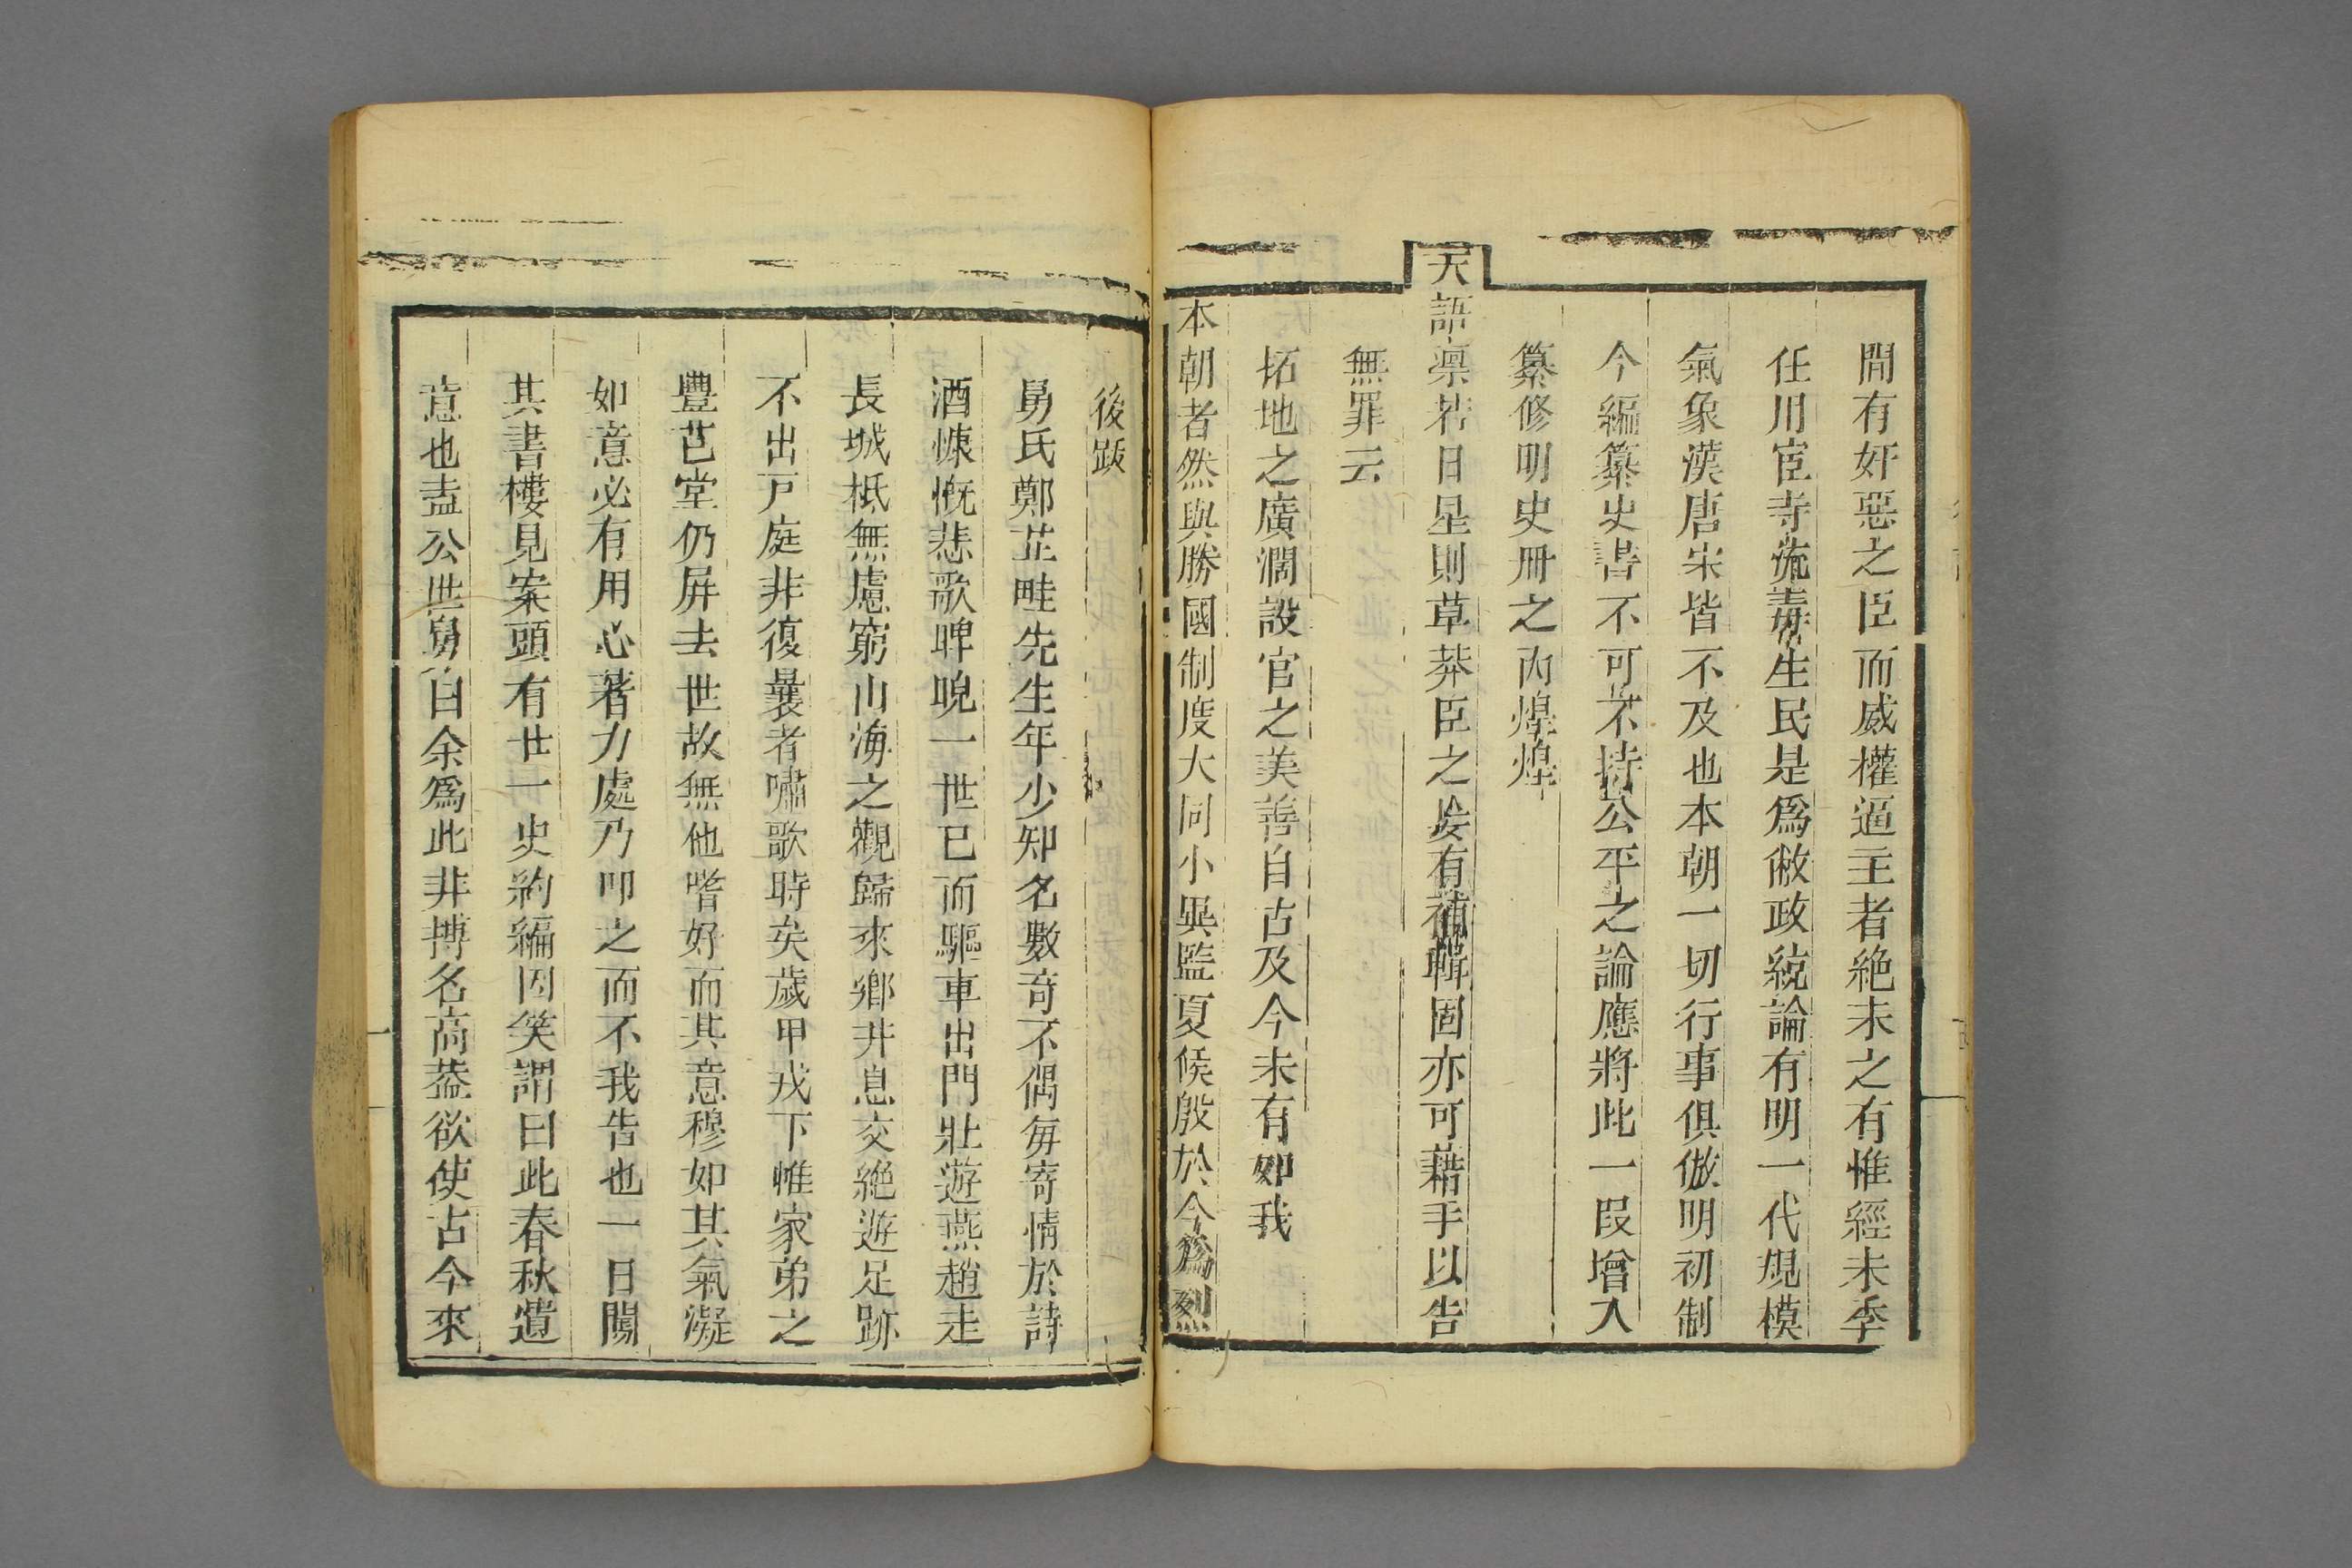 間有奸惡之臣而威權逼主者絶未之有惟經末季
任用宦寺流毒生民是爲敝政綜論有明一代規模
氣象漢唐宋皆不及也本朝一切行事俱倣明初制
今編纂史書不可不持公平之論應將此一段增入
纂修明史冊之內煌煌
天語凛若日星則草莽臣之妄有補輯固亦可藉手以告
無罪云
拓地之廣濶設官之美善自古及今未有如我
本朝者然與勝國制度大同小異監夏俟殷於今爲烈
後跋
舅氏鄭芷畦先生年少知名數奇不偶每寄情於詩
酒慷慨悲歌睥睨一世已而驅車出門壯遊燕趙走
長城柢無慮窮山海之觀歸來鄉井息交絶遊足跡
不出戸庭非復曩者嘯歌時矣歲甲戌下帷家弟之
豐芑堂仍屏去世故無他嗜好而其意穆如其氣凝
如意必有用心著力處乃叩之而不我告也一日闖
其書樓見案頭有廿一史約編因笑謂曰此春秋遺
意也盍公世舅曰余爲此非搏名高葢欲使古今來